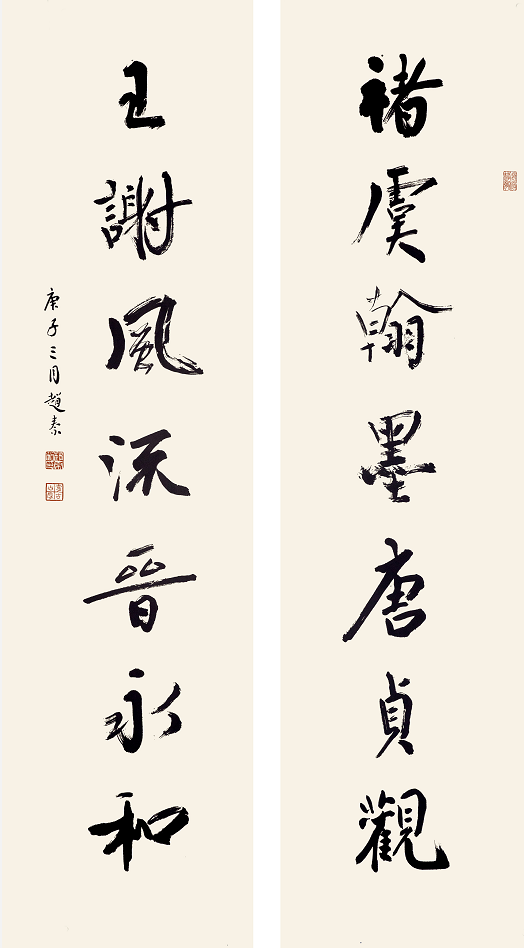 褚虞翰墨唐貞觀
王謝風流晉永和
庚子三月趙秦